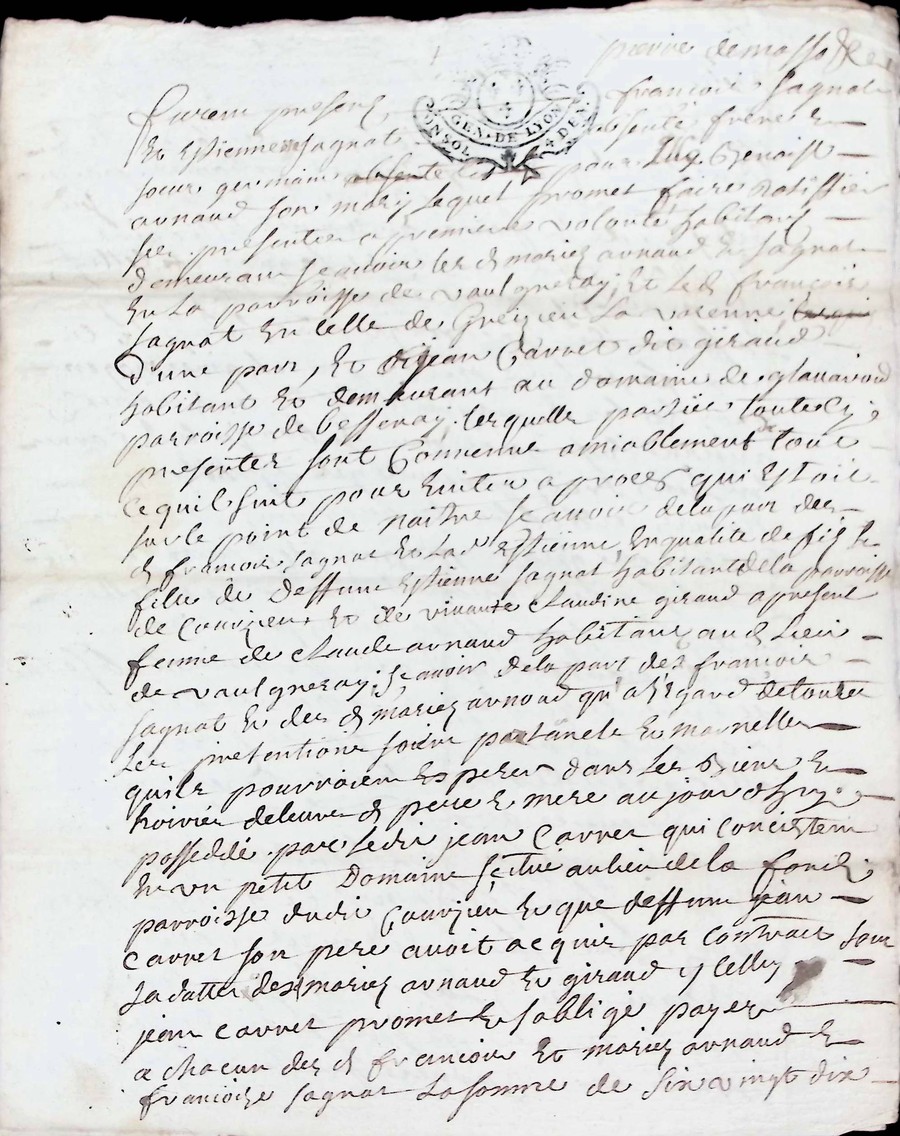 pierre de masso
furent presens francois sagnat
Et Estiennette sagnat absente freres &
soeur germains absente pour luy Benoist
arnaud son mary lequel promet faire Ratiffier
ses presentes a premiere volonté habitans
demeurans scavoir les d mariez arnaud & sagnat
En La parroisse de vaulgneray, Et Led francois
sagnat En celle de Grezieu La varenne,
D'une part, Et jean Carret dit giraud
habitant Et demeurant au domaine de glavaroud
parroisse de bessenay. lesquelle parties toute cy
presentes sont Convenue amiablement tout
ce quil suit pour Eviter a proces qui Estoit
sur le point de naitre scavoir de la part des
d francois sagnat Et Lad Estienne, En qualité de fis &
fille de deffunt Estienne sagnat habitant de la parroisse
de Courzieu, Et de vivante claudine giraud a present
femme de claude arnaud habitant aud Lieu
de vaulgneray: scavoir de la part des francois
sagnat Et des d mariez arnaud qu'a l'Egard de toutes
Les pretentions soient paternelle Et maternelles
quils pourroient Esperer dans Les Biens Et
hoiries de leurs d pere & mere au jourdhuy
possedde par Ledit jean Carret qui Concistent
En un petit Domaine scitue au lieu de la fond
parroisse dudit Courzieu Et que deffunt jean
Carret son pere avoit acquis par Contract sous
sa datte des mariez arnaud Et giraud y celluy
jean Carret promet Et sobligé payer
a chacun des d francois Et mariez arnaud &
francoise sagnat La somme de Six vingt dix
GEN. DE LYON